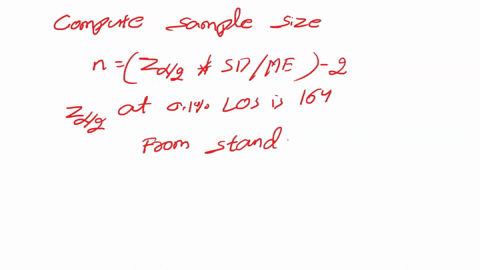 Compute sample size
n = (Zα/2 * SD/ME) - 2
Zα/2 at 0.1% LOS is 164
From stand